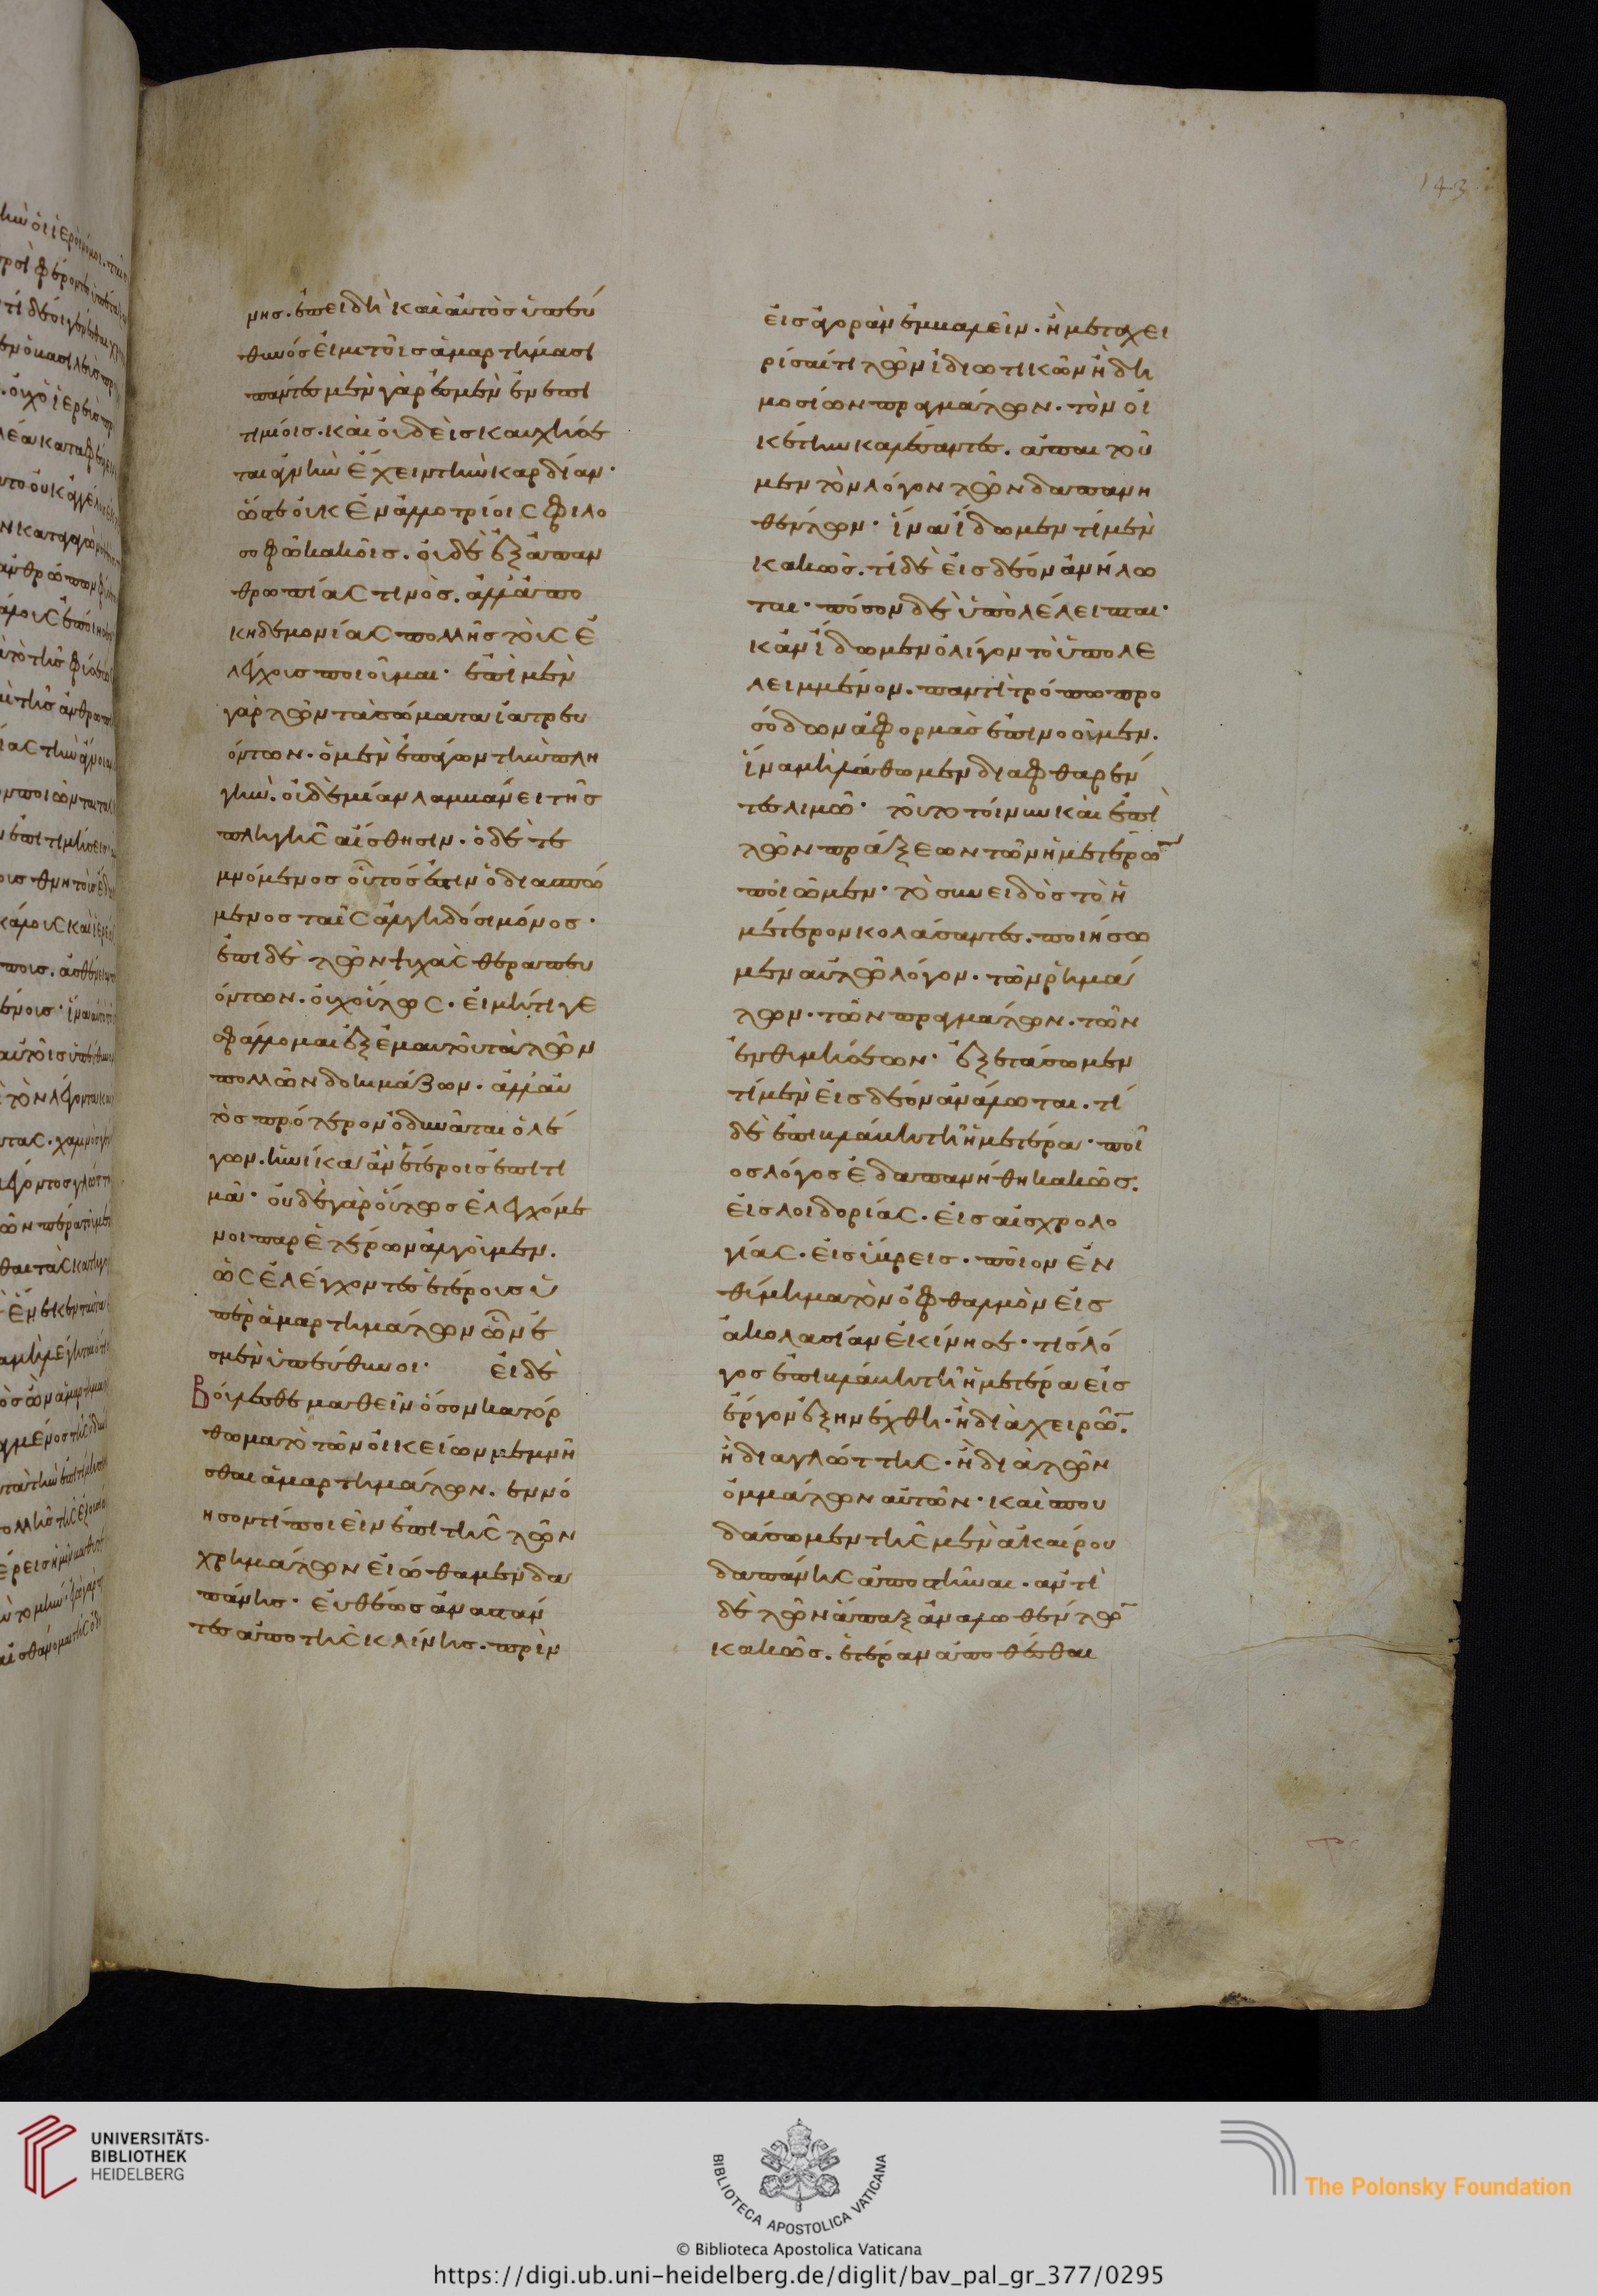 μης. ἐπειδὴ καὶ αὐτὸς ὑπεύ
θυνός εἰμι τοῖς ἁμαρτήμασι
πάντες μὲν γὰρ ἐσμὲν ἐν ἐπι
τιμίοις. καὶ οὐδεὶς καυχήσε
ται ἁγνὴν ἔχειν τὴν καρδίαν·
ὥστε οὐκ ἐν ἀλλοτρίοις φιλο
σοφῶ κακοῖς. οὐδὲ ἐξ ἀπαν
θρωπίας τινὸς. ἀλλ' ἀπὸ
κηδεμονίας πολλῆς τοὺς ἐ
λέγχους ποιοῦμαι· ἐπὶ μὲν
γὰρ τῶν τὰ σώματα ἰατρευ
όντων. ὁ μὲν ἐπάγων τὴν πλη
γὴν. οὐδεμίαν λαμβάνει τῆς
πληγῆς αἴσθησιν. ὁ δὲ τε
μνόμενος οὗτός ἐστιν ὁ διασπώ
μενος ταῖς ἀλγηδόσι μόνος·
ἐπὶ δὲ τῶν ψυχὰς θεραπευ
όντων. οὐχ οὕτως. εἰ μή τι γε
σφάλλομαι ἐξ ἐμαυτοῦ τὰ τῶν
πολλῶν δοκιμάζων. ἀλλ' αὐ
τὸς πρότερον ὀδυνᾶται ὁ λέ
γων. ἡνίκα ἂν ἑτέροις ἐπιτι
μᾶ· οὐδὲ γὰρ οὕτως ἐλεγχόμε
νοι παρ' ἑτέρων ἀλγοῦμεν.
ὡς ἐλέγχοντες ἑτέρους ὑ
πὲρ ἁμαρτημάτων ὧν ἐ
σμὲν ὑπεύθυνοι· εἰ δὲ
Βούλεσθε μαθεῖν ὅσον κατόρ
θωμα τὸ τῶν οἰκείων μεμνῆ
σθαι ἁμαρτημάτων. ἐννό
ησον τί ποιεῖν ἐπὶ τῆς τῶν
χρημάτων εἰώθαμεν δα
πάνης· εὐθέως ἀναστάν
τες ἀπὸ τῆς κλίνης. πρὶν
143
εἰς ἀγορὰν ἐμβαλεῖν. ἢ μεταχει
ρίσαί τι τῶν ἰδιωτικῶν ἢ δη
μοσίων πραγμάτων. τὸν οἰ
κέτην καλέσαντες. ἀπαιτοῦ
μεν τὸν λόγον τῶν δαπανη
θέντων· ἵνα ἴδωμεν τί μὲν
κακῶς. τί δὲ εἰς δέον ἀνήλω
ται· πόσον δὲ ὑπολέλειπται·
κἂν ἴδωμεν ὀλίγον τὸ ὑπολε
λειμμένον. παντὶ τρόπω προ
σόδων ἀφορμὰς ἐπινοοῦμεν.
ἵνα μὴ λάθωμεν διαφθαρέν
τες λιμῶ· τοῦτο τοίνυν καὶ ἐπὶ
τῶν πράξεων τῶν ἡμετέρω̅
ποιῶμεν· τὸ συνειδὸς τὸ ἡ
μέτερον καλέσαντες. ποιήσω
μεν αὐτῶ λόγον. τῶν ῥημά
των. τῶν πραγμάτων. τῶν
ἐνθυμήσεων· ἐξετάσωμεν
τί μὲν εἰς δέον ἀνάλωται. τί
δὲ ἐπὶ βλάβη τῆ ἡμετέρα· ποῖ
ος λόγος ἐδαπανήθη κακῶς.
εἰς λοιδορίας. εἰς αἰσχρολο
γίας. εἰς ὕβρεις. ποῖον ἐν
θύμημα τὸν ὀφθαλμὸν εἰς
ἀκολασίαν ἐκίνησε· τίς λό
γος ἐπὶ βλάβη τῆ ἡμετέρα εἰς
ἔργον ἐξηνέχθη. ἢ διὰ χειρῶ̅.
ἢ διὰ γλώττης. ἢ διὰ τῶν
ὀμμάτων αὐτῶν· καὶ σπου
δάσωμεν τῆς μὲν ἀκαίρου
δαπάνης ἀποστῆναι. ἀντὶ
δὲ τῶν ἅπαξ ἀναλωθέντω̅
κακῶς. ἑτέραν ἀποθέσθαι
UNIVERSITÄTS-
BIBLIOTHEK
HEIDELBERG
BIBLIOTECA APOSTOLICA VATICANA
© Biblioteca Apostolica Vaticana
The Polonsky Foundation
https://digi.ub.uni-heidelberg.de/diglit/bav_pal_gr_377/0295